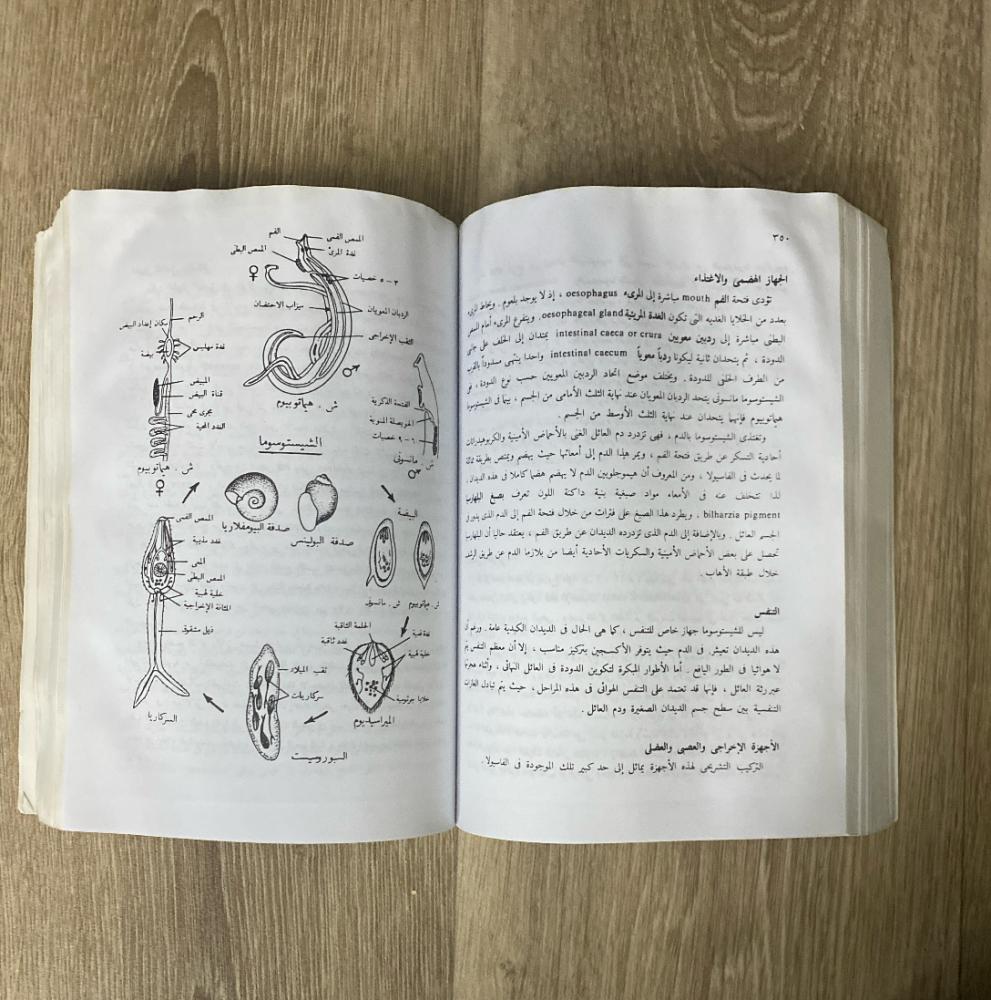 ٣٥٠
الجهاز الهضمى والاغتذاء
تؤدى فتحة الفم mouth مباشرة إلى المرىء oesophagus ، إذ لا يوجد بلعوم . ويحاط المرىء
بعدد من الخلايا الغدية التى تكون الغدة المريئية oesophageal gland. ويتفرع المرىء أمام الممص
البطنى مباشرة إلى ردبين معويين intestinal caeca or crura يمتدان إلى الخلف على جانبى
الدودة ، ثم يتحدان ثانية ليكونا ردباً معوياً intestinal caecum واحدا ينتهى مسدوداً بالقرب
من الطرف الخلفى للدودة . ويختلف موضع اتحاد الردبين المعويين حسب نوع الدودة ، فى
الشيستوسوما مانسونى يتحد الردبان المعويان عند نهاية الثلث الأمامى من الجسم ، بينما فى الشيستوسوما
هيماتوبيوم فإنهما يتحدان عند نهاية الثلث الأوسط من الجسم .
وتغتذى الشيستوسوما بالدم ، فهى تزدرد دم العائل الغنى بالأحماض الأمينية والكربوهيدراتات
أحادية التسكر عن طريق فتحة الفم ، ويمر هذا الدم إلى أمعائها حيث يهضم ويمتص بطريقة مماثلة
لما يحدث فى الفاسيولا . ومن المعروف أن هيموجلوبين الدم لا يهضم هضما كاملا فى هذه الديدان .
لذا تتخلف عنه فى الأمعاء مواد صبغية بنية داكنة اللون تعرف بصبغ البلهارسيا
bilharzia pigment ، ويطرد هذا الصبغ على فترات من خلال فتحة الفم إلى الدم الذى يدور فى
الجسم العائل . وبالإضافة إلى الدم الذى تزدرده الديدان عن طريق الفم ، يعتقد حاليا أن البلهارسيا
تحصل على بعض الأحماض الأمينية والسكريات الأحادية أيضا من بلازما الدم عن طريق
خلال طبقة الأهاب .
التنفس
ليس للشيستوسوما جهاز خاص للتنفس ، كما هى الحال فى الديدان الكبدية عامة . ورغم أن
هذه الديدان تعيش فى الدم حيث يتوفر الأكسجين بتركيز مناسب ، إلا أن معظم التنفس يتم
لا هوائيا فى الطور اليافع . أما الأطوار المبكرة لتكوين الدودة فى العائل النهائى ، وأثناء
عبر رئة العائل ، فإنها قد تعتمد على التنفس الهوائى فى هذه المراحل ، حيث يتم تبادل الغازات
التنفسية بين سطح جسم الديدان الصغيرة ودم العائل .
الأجهزة الإخراجى والعصبى والعضلى
التركيب التشريحى لهذه الأجهزة يماثل إلى حد كبير تلك الموجودة فى الفاسيولا .
الفم
الممص الفمى
غدة المرىء
الممص البطنى
♀
٣ - ٥ خصيات
ميزاب الاحتضان
الردبان المعويان
الثقب الإخراجى
♂
ش . هيماتوبيوم
الرحم
مكان إعداد البيض
غدة مهليس
بيضة
المبيض
قناة البيض
مجرى محى
الغدد المحية
ش . هيماتوبيوم
♀
الفتحة الذكرية
الحويصلة المنوية
٦ - ٩ خصيات
ش . مانسونى
♂
الشيستوسوما
صدفة البيومفلاريا
صدفة البولينس
البيضة
ش . مانسونى
ش . هيماتوبيوم
الممص الفمى
غدد مذيبة
المعى
الممص البطنى
خلية لهبية
المثانة الإخراجية
ذيل مشقوق
السركاريا
ثقب الميلاد
سركاريات
السبوروسيست
الحلمة الثاقبة
غدد ثاقبة
غدة قمية
خلية لهبية
خلايا جرثومية
الميراسيديوم